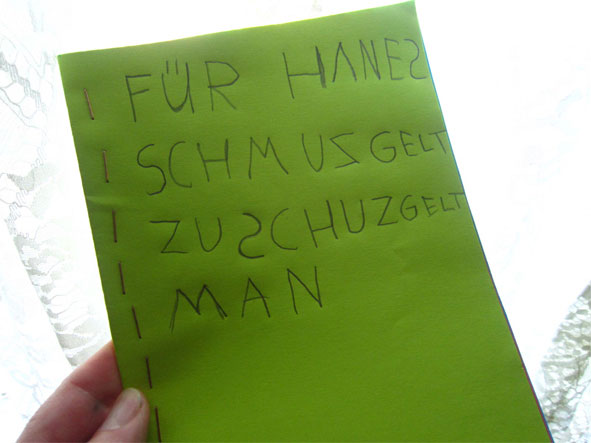 FÜR HANES
SCHMUSGELT
ZUSCHUZGELT
MAN